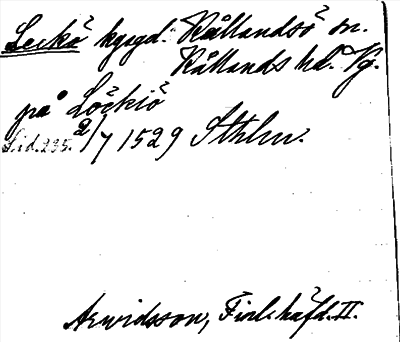 Leckö kygd. Kållandsö sn.
Kållands hd. Vg.
på Löckiö
Sid. 235. 2/7 1529 Sthlm.
Arwidsson, Finl. häfd. II.